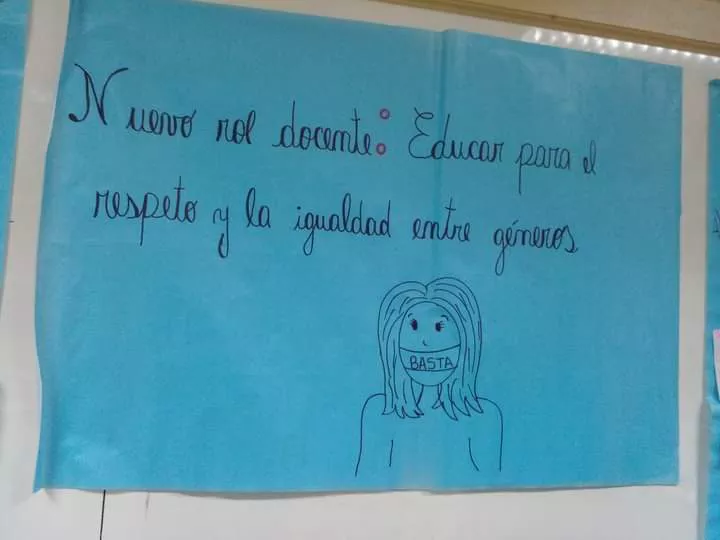 Nuevo rol docente: Educar para el
respeto y la igualdad entre géneros.
BASTA